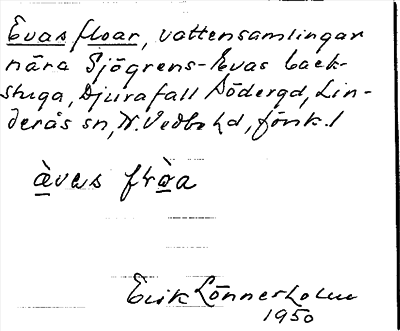 Evas floar, vattensamlingar
nära Sjögrens-Evas back-
stuga, Djurafall Södergd, Lin-
derås sn, N. Vedbo hd, Jönk. l
àvas flàa
Erik Lönnerholm
1950